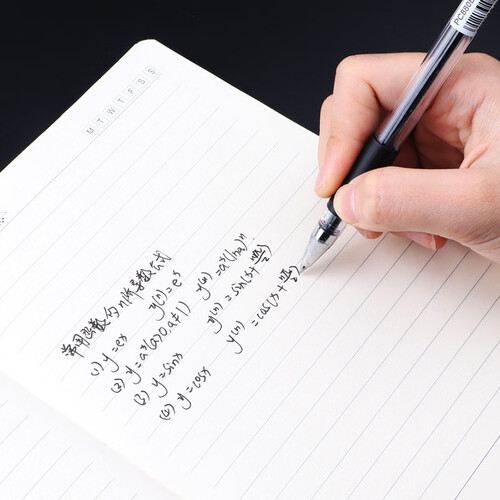 M T W T F S S
PC880
常用函数的n阶导数公式
(1) y=eˣ y⁽ⁿ⁾=eˣ
(2) y=aˣ(a>0,a≠1) y⁽ⁿ⁾=aˣ(lna)ⁿ
(3) y=sinx y⁽ⁿ⁾=sin(x+nπ/2)
(4) y=cosx y⁽ⁿ⁾=cos(x+nπ/2)